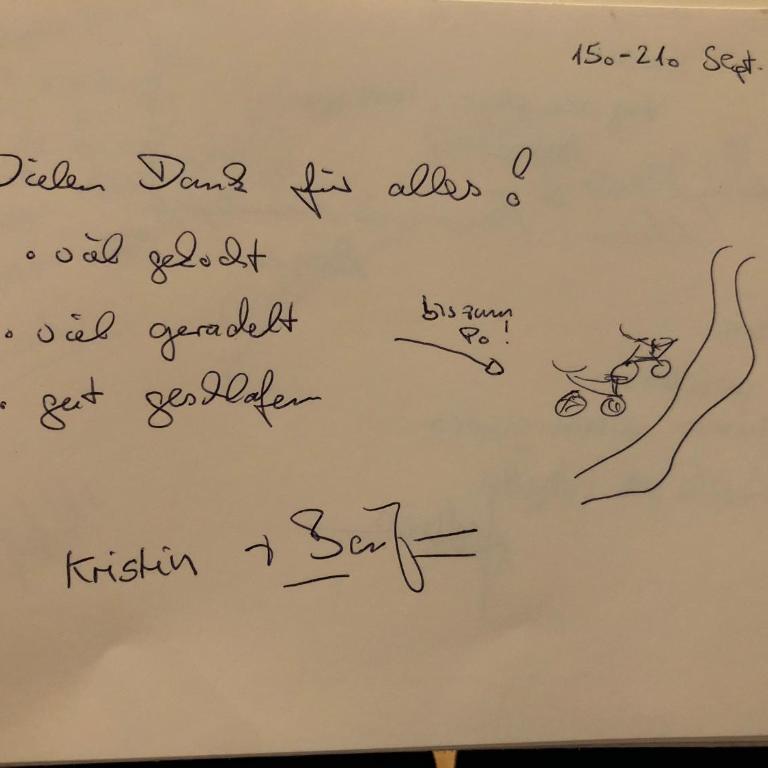 15.-21. Sept.
Vielen Dank für alles!
• viel gekocht
• viel geradelt
bis zum
Po!
• gut geschlafen
Kristin +